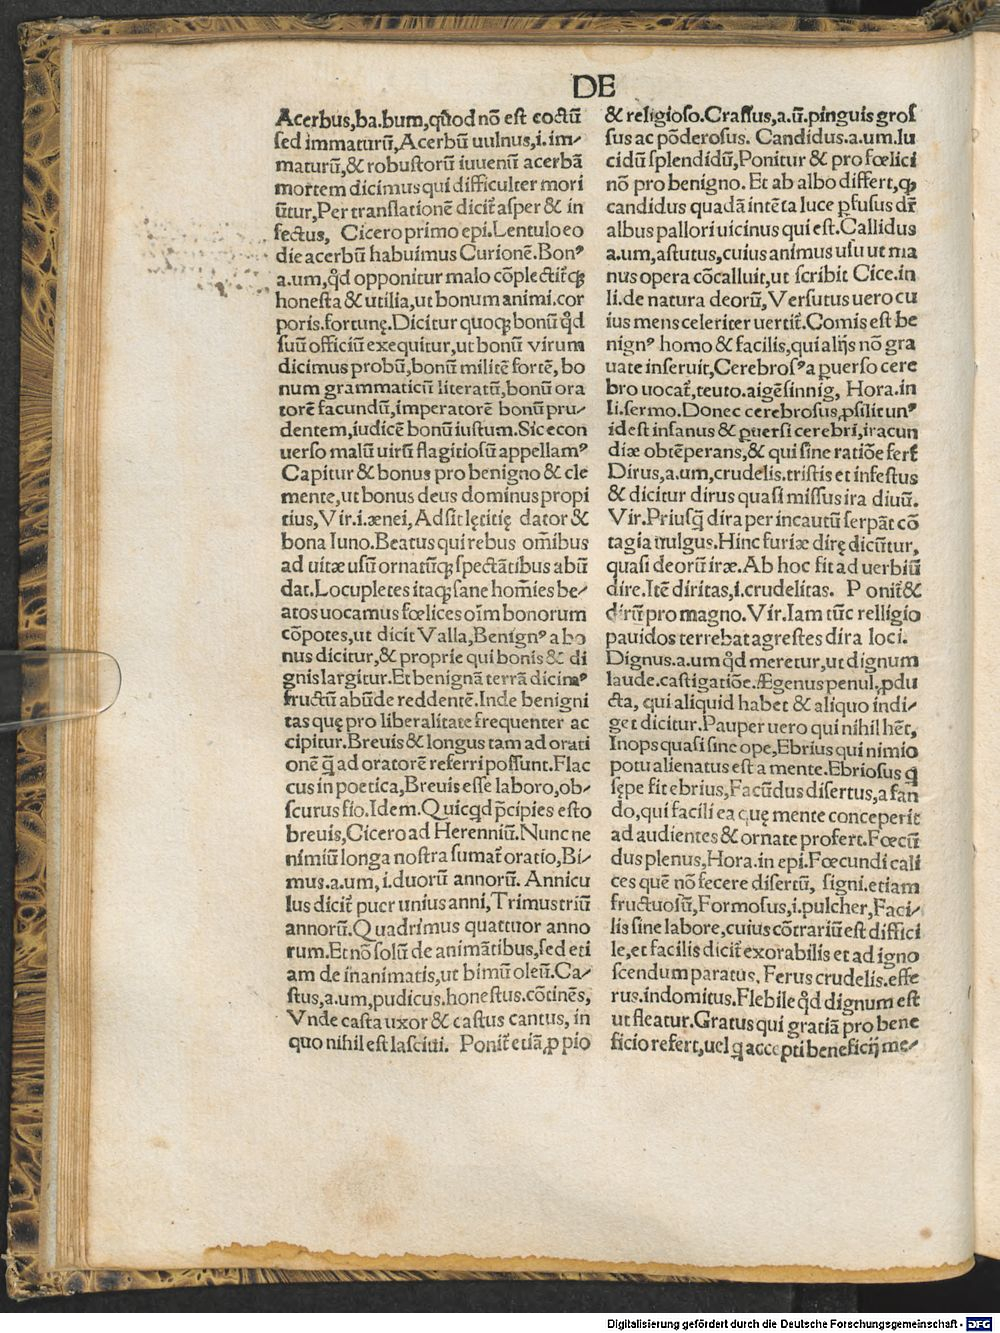 DE
Acerbus,ba.bum,quod nõ est coctũ
sed immaturũ,Acerbũ uulnus,i.im⸗
maturũ,& robustorũ iuuenũ acerbã
mortem dicimus qui difficulter mori
ũtur,Per translationẽ dicit᷑ asper & in
fectus, Cicero primo epi.Lentulo eo
die acerbũ habuimus Curionẽ.Bonꝰ
a.um,qd̾ opponitur malo cõplectit᷑qꝫ
honesta & utilia,ut bonum animi.cor
poris.fortunę.Dicitur quoqꝫ bonũ qd̾
suũ officiũ exequitur,ut bonũ virum
dicimus probũ,bonũ militẽ fortẽ, bo
num grammaticũ literatũ,bonũ ora
torẽ facundũ,imperatorẽ bonũ pru⸗
dentem,iudicẽ bonũ iustum.Sic econ
uerso malũ uirũ flagitiosũ appellamꝰ
Capitur & bonus pro benigno & cle
mente,ut bonus deus dominus propi
tius,Vir.i.ænei,Adsit lętitię dator &
bona Iuno.Beatus qui rebus om̃ibus
ad uitæ usũ ornatũqꝫ spectãtibus abũ
dat.Locupletes itaqꝫ sane hom̃ies be⸗
atos uocamus fœlices oĩm bonorum
cõpotes,ut dicit Valla,Benignꝰ a bo
nus dicitur,& proprie qui bonis & di
gnis largitur.Et benignã terrã dicimꝰ
fructũ abũde reddentẽ.Inde benigni
tas quę pro liberalitate frequenter ac
cipitur.Brevis & longus tam ad orati
onẽ q̃ ad oratorẽ referri possunt.Flac
cus in poetica,Brevis esse laboro,ob⸗
scurus fio.Idem.Quicqd p̃cipies esto
breuis,Cicero ad Herenniũ.Nunc ne
nimiũ longa nostra sumat᷑ oratio,Bi⸗
mus.a.um,i.duorũ annorũ. Annicu
lus dicit᷑ puer unius anni,Trimus triũ
annorũ.Quadrimus quattuor anno
rum.Et nõ solũ de animãtibus,sed eti
am de inanimatis,ut bimũ oleũ.Ca⸗
stus,a.um,pudicus.honestus.cõtinẽs,
Vnde casta uxor & castus cantus, in
quo nihil est lasciui. Ponit᷑ etiã,ꝓ pio
& religioso.Crassus,a.ũ.pinguis gros
sus ac põderosus. Candidus.a.um.lu
cidũ splendidũ,Ponitur & pro fœlici
nõ pro benigno. Et ab albo differt,qꝫ
candidus quadã intẽta luce ꝑfusus dr̃
albus pallori uicinus qui est.Callidus
a.um,astutus,cuius animus usu ut ma
nus opera cõcalluit,ut scribit Cice.in
li.de natura deorũ,Versutus uero cu
ius mens celeriter uertit᷑.Comis est be
nignꝰ homo & facilis,qui alijs nõ gra
uate inseruit,Cerebrosꝰ a puerso cere
bro uocat᷑,teuto.aigẽsinnig, Hora.in
li.sermo.Donec cerebrosus,ꝓsilit unꝰ
id est insanus & ꝑuersi cerebri,iracun
diæ obtẽperans,& qui sine ratiõe fert᷑
Dirus,a.um,crudelis.tristis et infestus
& dicitur dirus quasi missus ira diuũ.
Vir.Priusq̃ dira per incautũ serpãt cõ
tagia uulgus.Hinc furiæ dirę dicũtur,
quasi deorũ iræ.Ab hoc fit ad uerbiũ
dire.Itẽ diritas,i.crudelitas. Ponit᷑ &
dirũ pro magno.Vir.Iam tũc relligio
pauidos terrebat agrestes dira loci.
Dignus.a.um qd̾ meretur,ut dignum
laude.castigatiõe.Ægenus penul,ꝓdu
cta, qui aliquid habet & aliquo indi⸗
get dicitur.Pauper uero qui nihil hẽt,
Inops quasi sine ope,Ebrius qui nimio
potu alienatus est a mente.Ebriosus q̃
sępe fit ebrius,Facũdus disertus,a fan
do,qui facili ea quę mente conceperit
ad audientes & ornate profert.Fœcũ
dus plenus,Hora.in epi.Fœcundi cali
ces quẽ nõ fecere disertũ, signi.etiam
fructuosũ,Formosus,i.pulcher,Faci⸗
lis sine labore,cuius cõtrariũ est diffici
le,et facilis dicit᷑ exorabilis et ad igno
scendum paratus, Ferus crudelis.effe
rus.indomitus.Flebile qd̾ dignum est
ut fleatur.Gratus qui gratiã pro bene
ficio refert,uel q̃ accepti beneficij me⸗
Digitalisierung gefördert durch die Deutsche Forschungsgemeinschaft - DFG